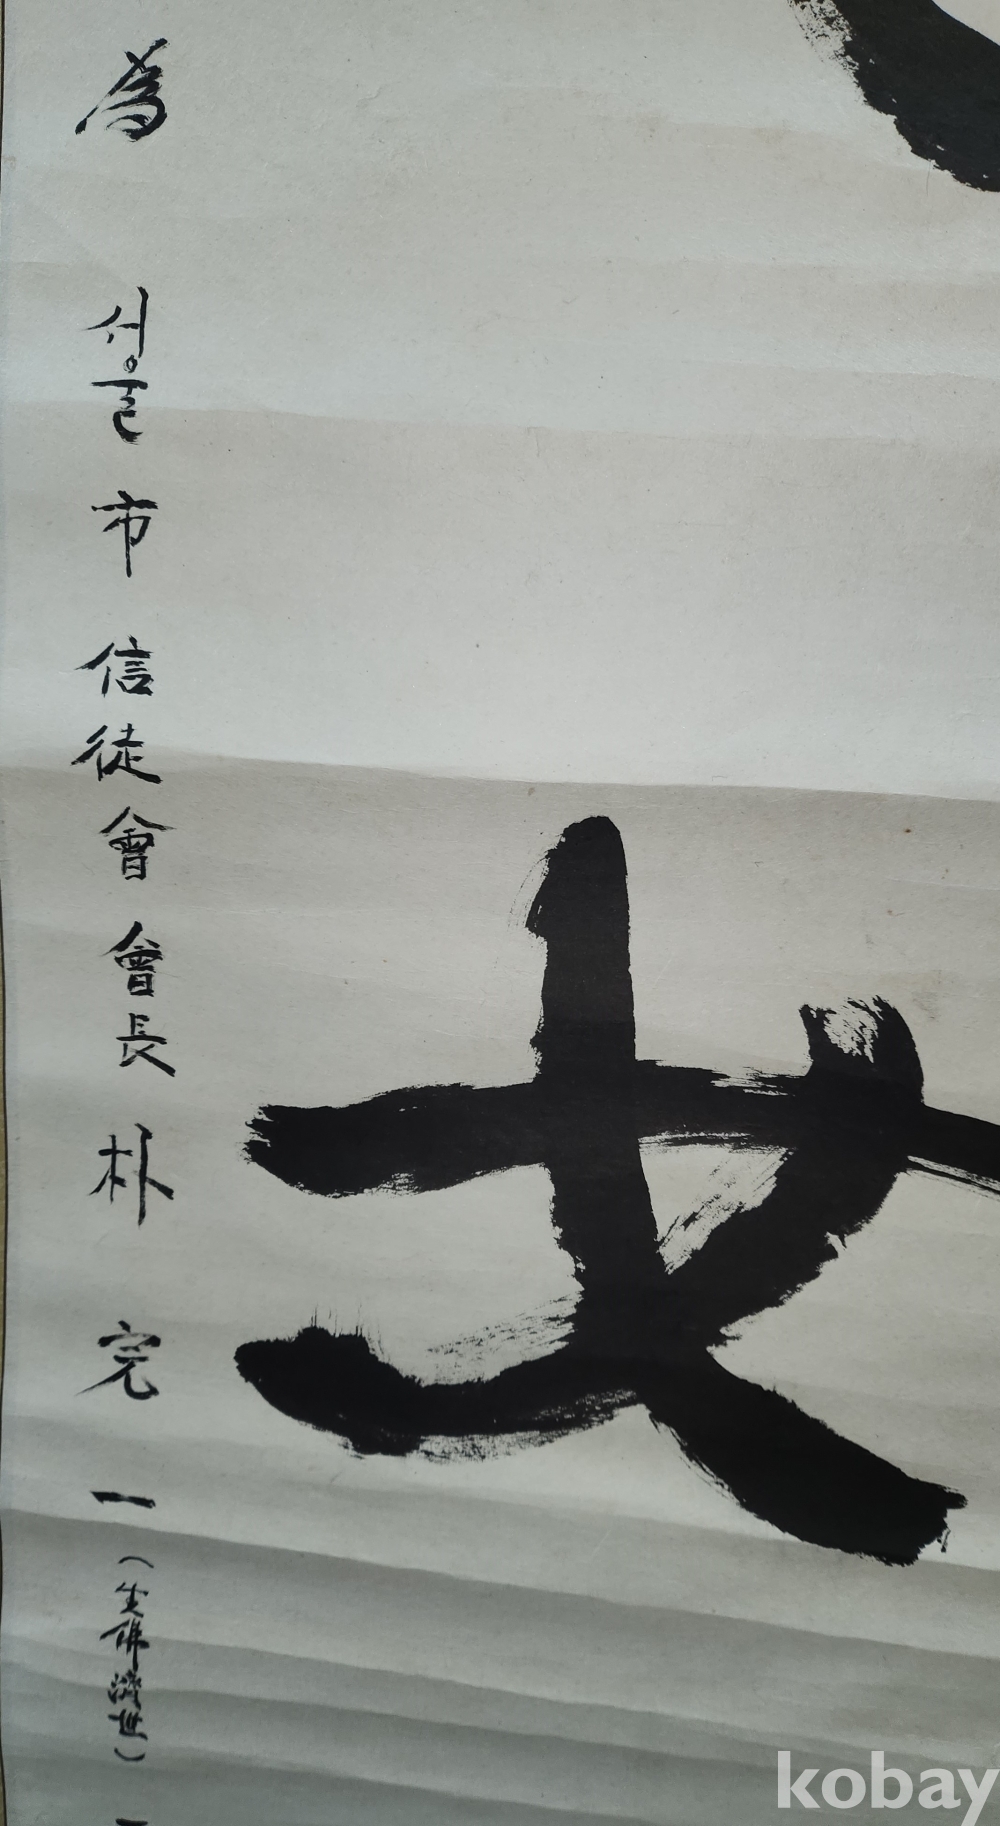 女
為 서울 市 信徒會 會長 朴 完 一 (生佛濟世)
kobay